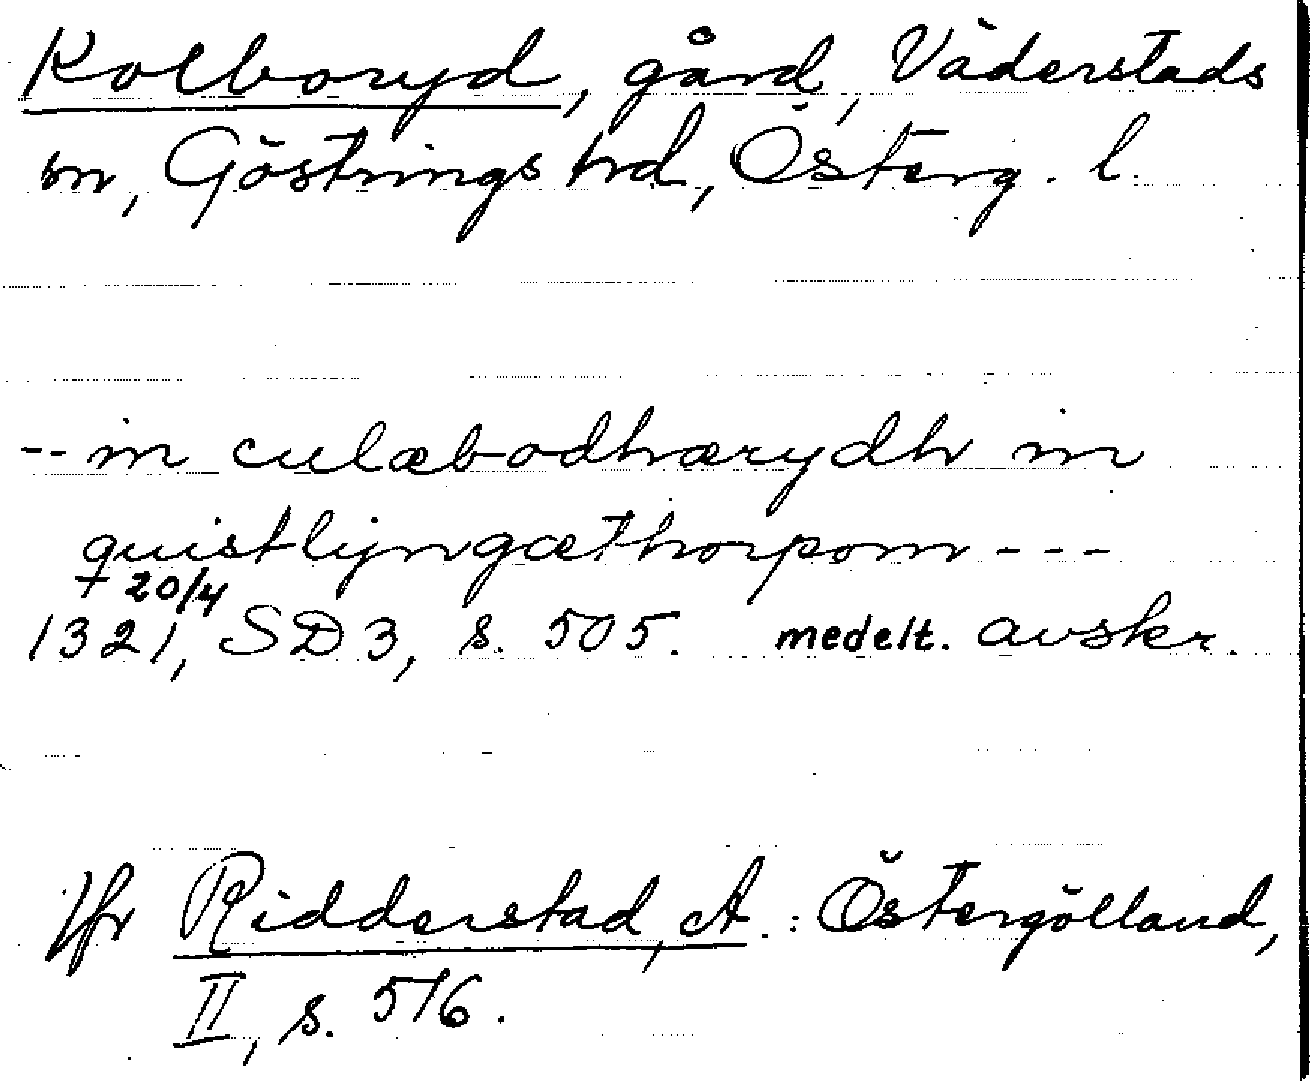 Kolboryd, gård, Väderstads
sn, Göstrings hd, Österg. l.
-- in culæbodhærydh in
quistlyngæthorpom ---
+ 20/4
1321, SD 3, s. 505. medelt. avskr.
Jfr Ridderstad, A.: Östergötland,
II, s. 516.